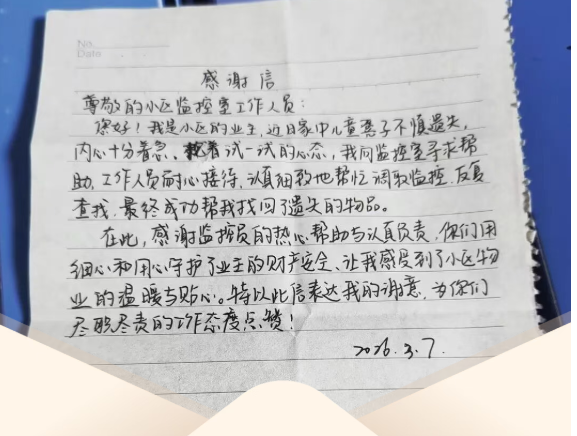 No.
Date
感谢信
尊敬的小区监控室工作人员：
您好！我是小区的业主，近日家中儿童凳子不慎遗失，
内心十分着急、抱着试一试的心态，我向监控室寻求帮
助，工作人员耐心接待，认真细致地帮忙调取监控、反复
查找，最终成功帮我找回了遗失的物品。
在此，感谢监控员的热心帮助与认真负责，你们用
细心和用心守护了业主的财产安全、让我感受到了小区物
业的温暖与贴心。特以此信表达我的谢意，为你们
尽职尽责的工作态度点赞！
2026.3.7.